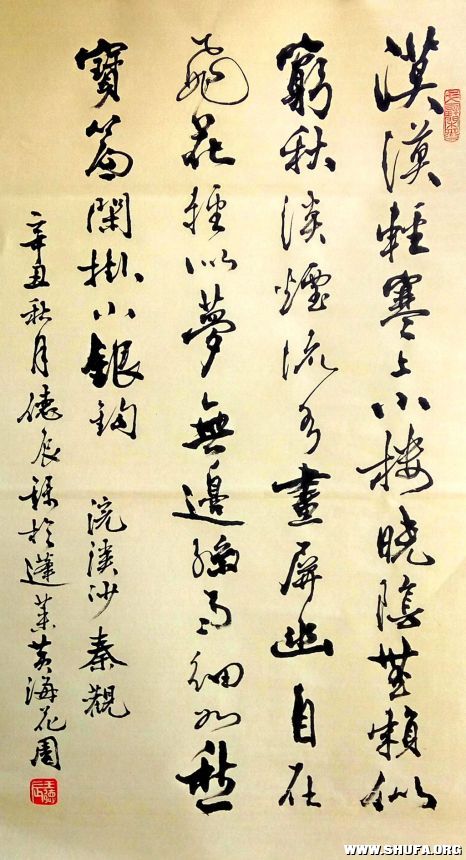 漠漠輕寒上小楼晓陰無賴似
窮秋淡煙流水畫屏幽自在
飛花輕似夢無邊絲雨細如愁
寶簾閑掛小銀鈎 浣溪沙 秦觀
辛丑秋月德辰録於蓬萊黄海花園
WWW.SHUFA.ORG